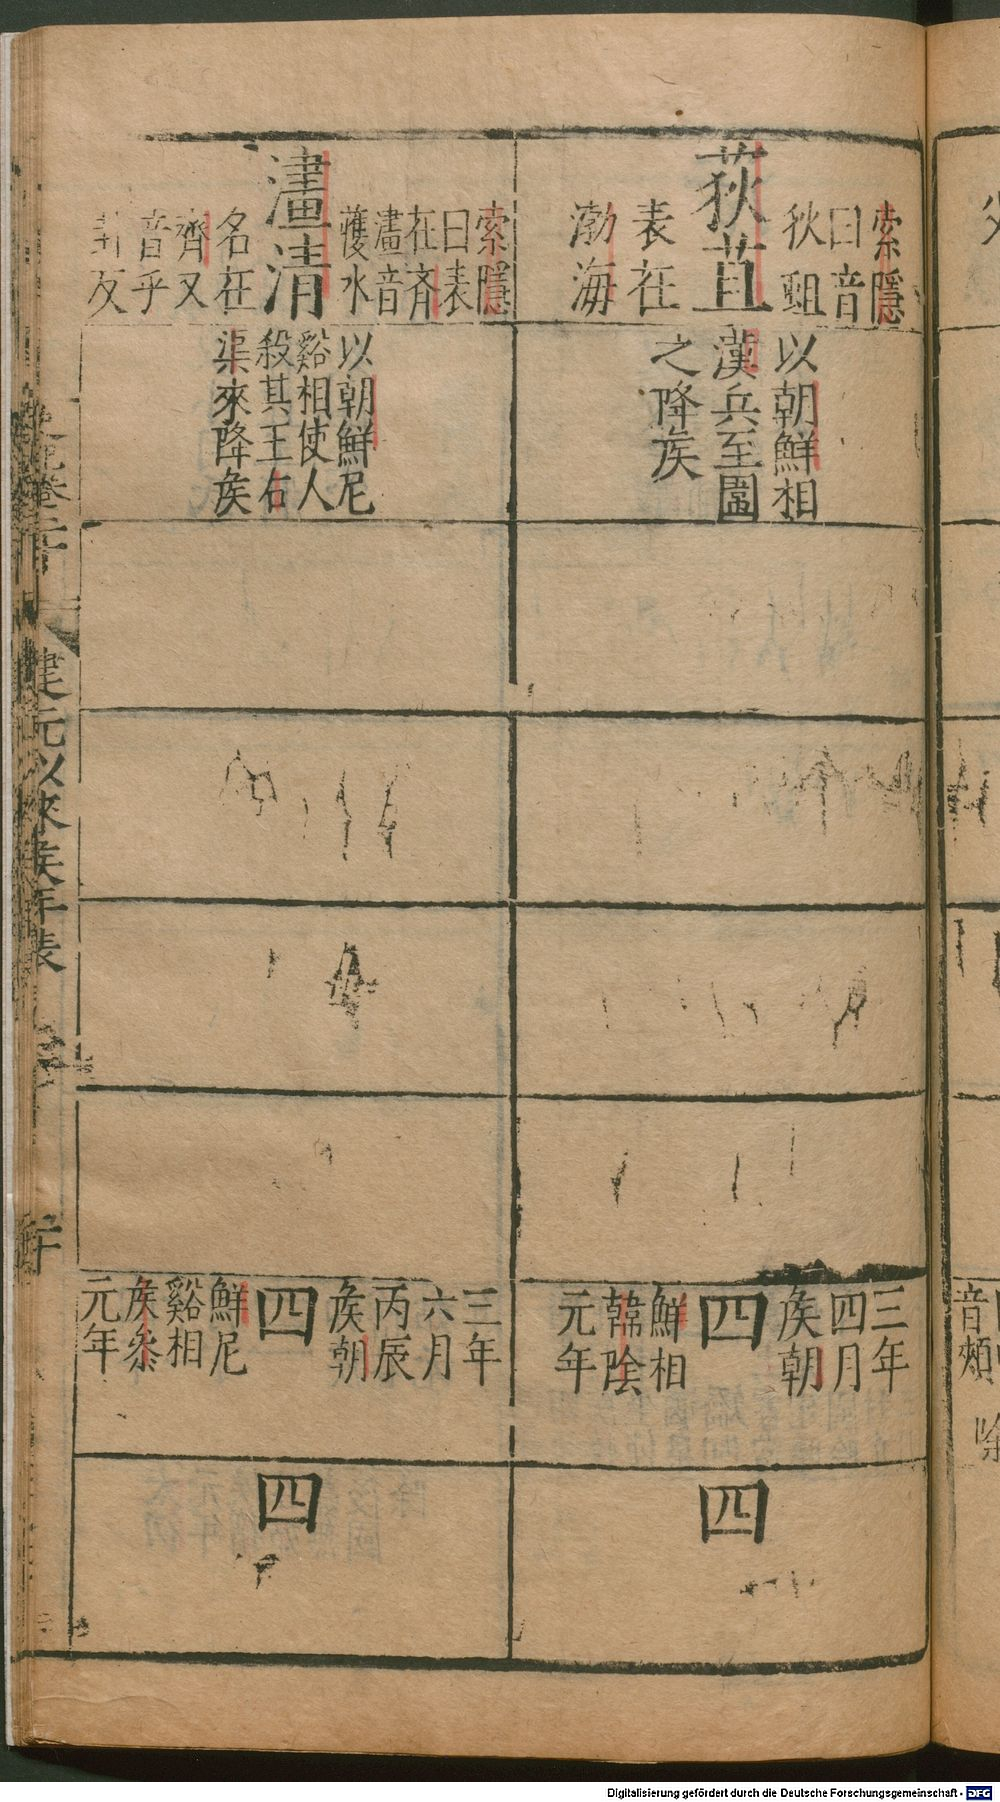 荻苴
索隱
曰音
狄蛆
表在
渤海
以朝鮮相
漢兵至圍
之降矦
三年
四月
矦朝
四
鮮相
韓陰
元年
四
索隱
曰表
在齊
澅音
䕶水
澅清
名在
齊又
音乎
卦反
以朝鮮尼
谿相使人
殺其王右
渠來降矦
三年
六月
丙辰
矦朝
四
鮮尼
谿相
矦叅
元年
四
建元以來矦年表
音頰
Digitalisierung gefördert durch die Deutsche Forschungsgemeinschaft - DFG